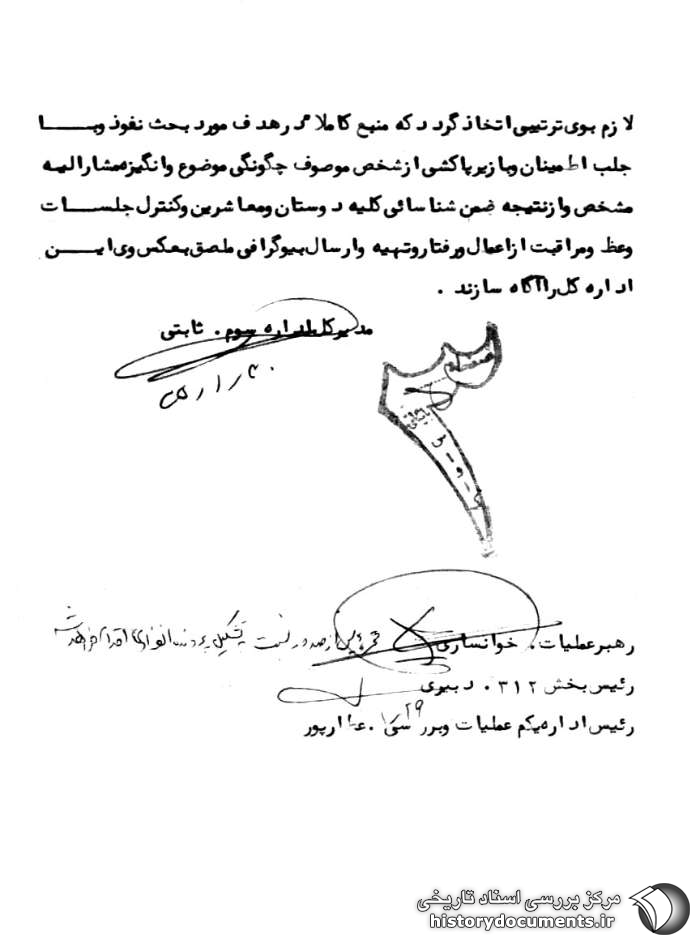 لازم بوی ترتیبی اتخاذ گردد که منبع کاملا در هدف مورد بحث نفوذ وبا
جلب اطمینان وبا زیر پاکشی از شخص موصوف چگونگی موضوع وانگیزه مشارالیه
مشخص واز نتیجه ضمن شناسائی کلیه دوستان ومعاشرین وکنترل جلسات
وعظ ومراقبت از اعمال ورفتار وتهیه وارسال بیوگرافی ملصق بعکس وی این
اداره کل را آگاه سازند .
مدیر کل اداره سوم . ثابتی
رهبر عملیات . خوانساری
رئیس بخش ۳۱۲ . دبیری
رئیس اداره یکم عملیات وبررسی . عطارپور
مرکز بررسی اسناد تاریخی
historydocuments.ir